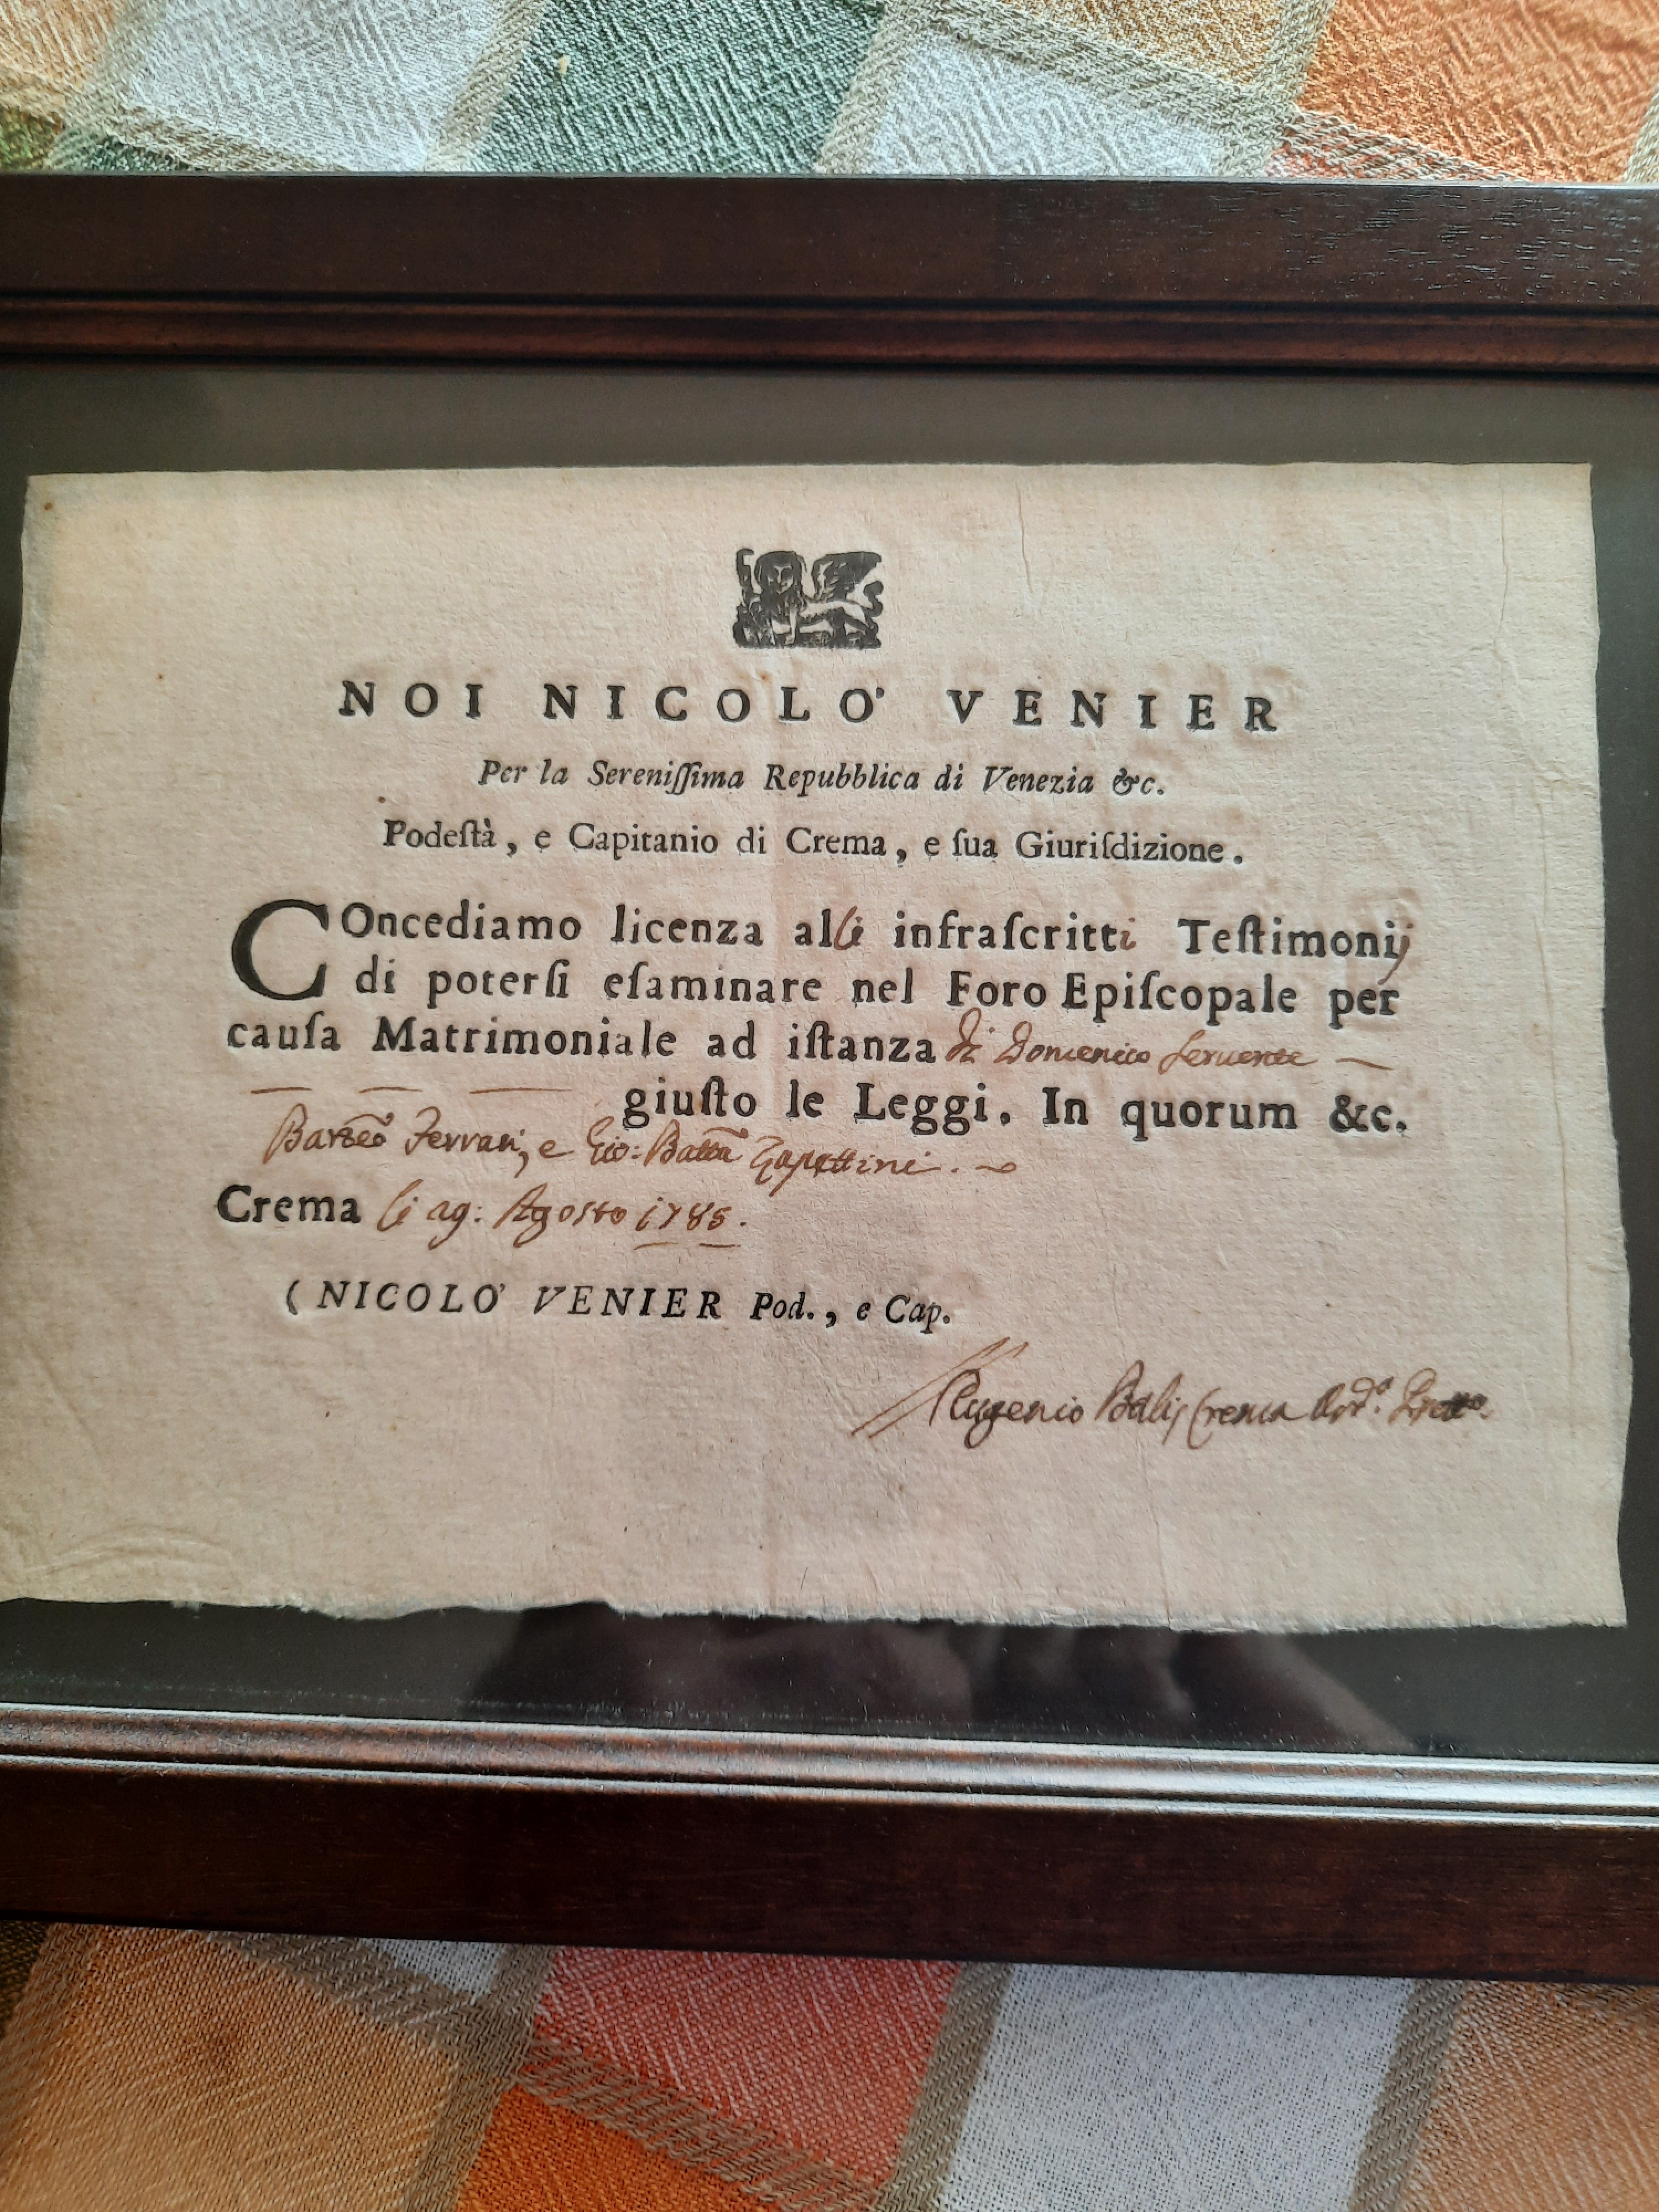 NOI NICOLO' VENIER
Per la Sereniſſima Repubblica di Venezia &c.
Podeſtà, e Capitanio di Crema, e ſua Giuriſdizione.
COncediamo licenza alli infraſcritti Teſtimonij
di poterſi eſaminare nel Foro Epiſcopale per
cauſa Matrimoniale ad iſtanza di Domenico
giuſto le Leggi. In quorum &c.
Ferrari, e Gio: Batta
Crema li Agosto 1785.
(NICOLO' VENIER Pod., e Cap.
Eugenio Crema